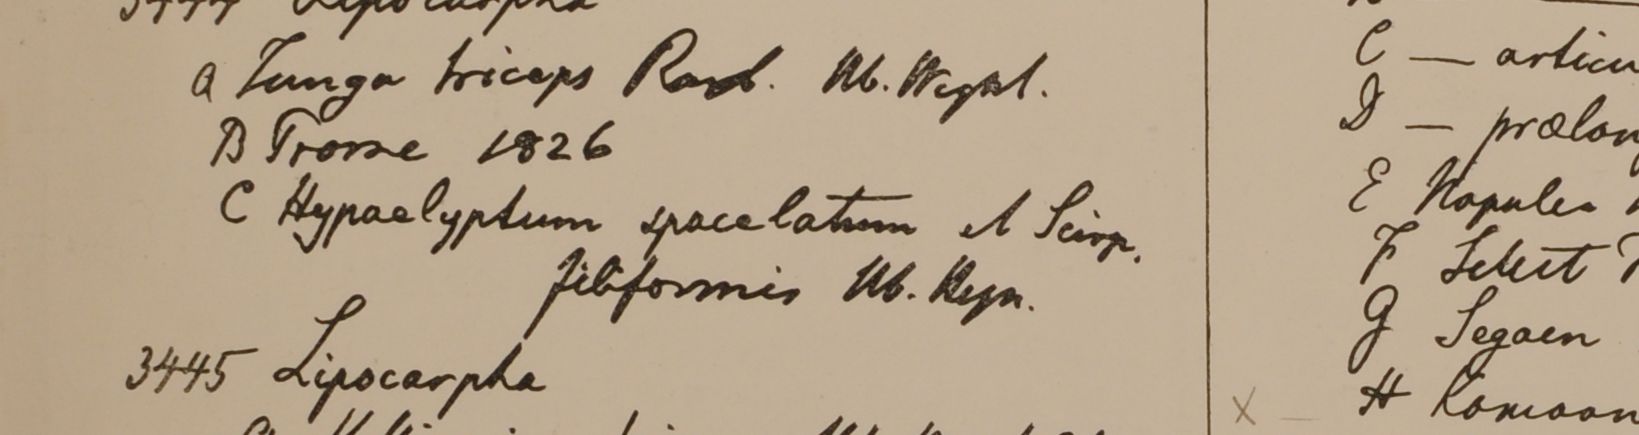 3444 Lipocarpha
a Tunga triceps Roxb. Hb. Wight.
B Trome 1826
C Hypaelyptum spacelatum et Scirp.
filiformis Hb. Heyn.
3445 Lipocarpha
C — articu
D — prælon
E Napulea
F Silhet
G Segaen
H Kamaon
X